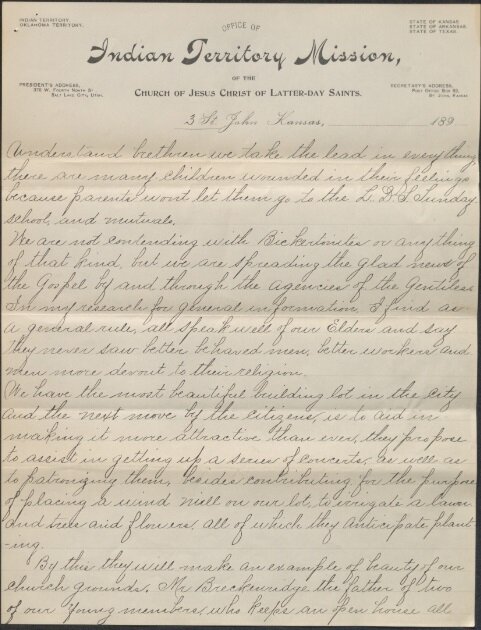 INDIAN TERRITORY.
OKLAHOMA TERRITORY.
STATE OF KANSAS
STATE OF ARKANSAS.
STATE OF TEXAS.
OFFICE OF
Indian Territory Mission,
OF THE
CHURCH OF JESUS CHRIST OF LATTER-DAY SAINTS.
PRESIDENT'S ADDRESS,
376 W. FOURTH NORTH ST
SALT LAKE CITY, UTAH.
SECRETARY'S ADDRESS,
POST OFFICE BOX 93,
ST. JOHN, KANSAS
3 St. John Kansas, 189
Understand brethren we take the lead in everything
there are many children wounded in their feelings
because parents wont let them go to the L.D.S. Sunday
school, and mutuals.
We are not contending with Bickertonites or anything
of that kind, but we are spreading the glad news of
the Gospel by and through the agencies of the Gentiles.
In my research for general information, I find as
a general rule, all speak well of our Elders and say
they never saw better behaved men, better workers and
men more devout to their religion.
We have the most beautiful building lot in the city
and the next move by the citizens, is to aid in
making it more attractive than ever, they propose
to assist in getting up a series of concerts, as well as
to patronging them, besides contributing for the purpose
of placing a wind mill on our lot, to irrigate a lawn
and trees and flowers, all of which they anticipate plant-
-ing.
By this they will make an example of beauty of our
church grounds. Mr Breckenridge the father of two
of our young members, who keeps an open house all